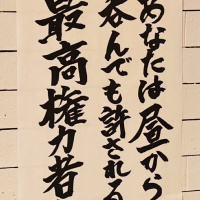 あなたは昼から
呑んでも許される
最高権力者